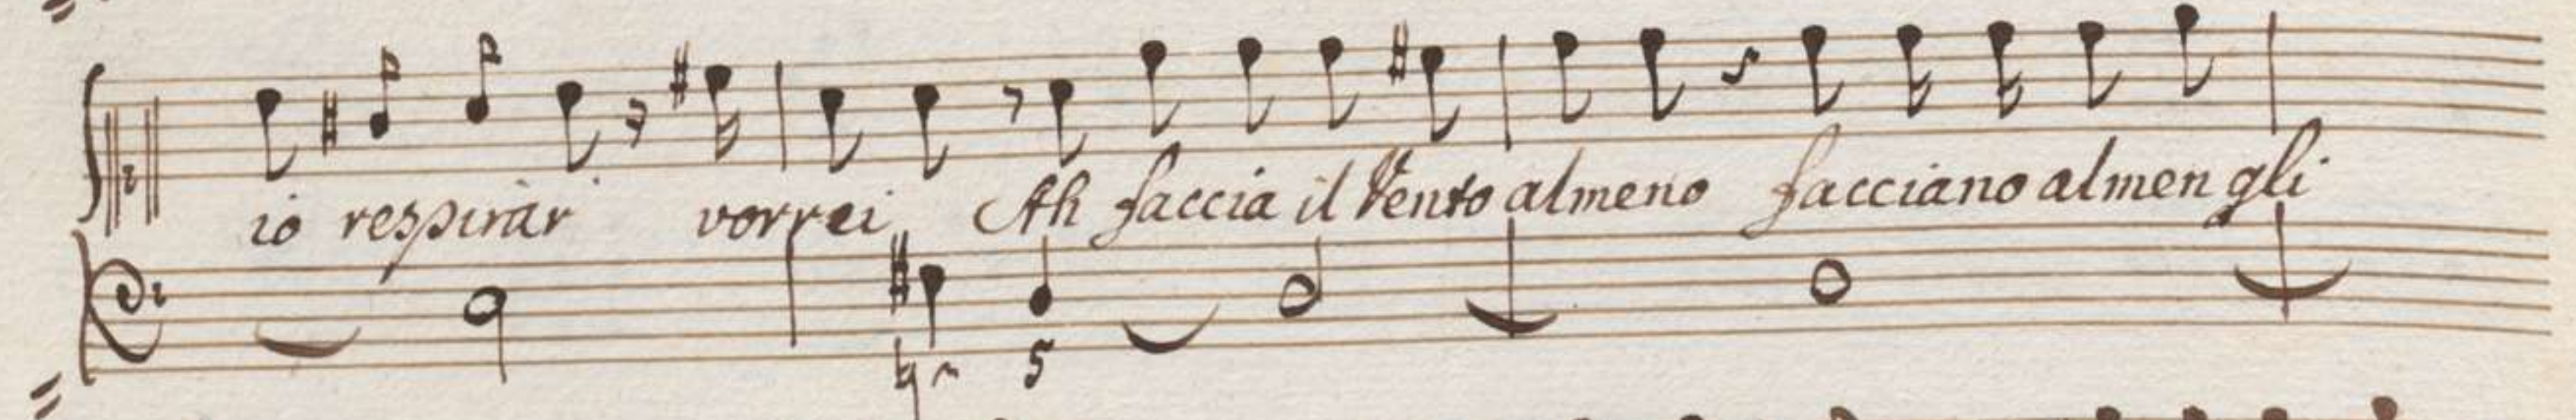 io respirar vorrei Ah faccia il Vento almeno facciano almen gli
5